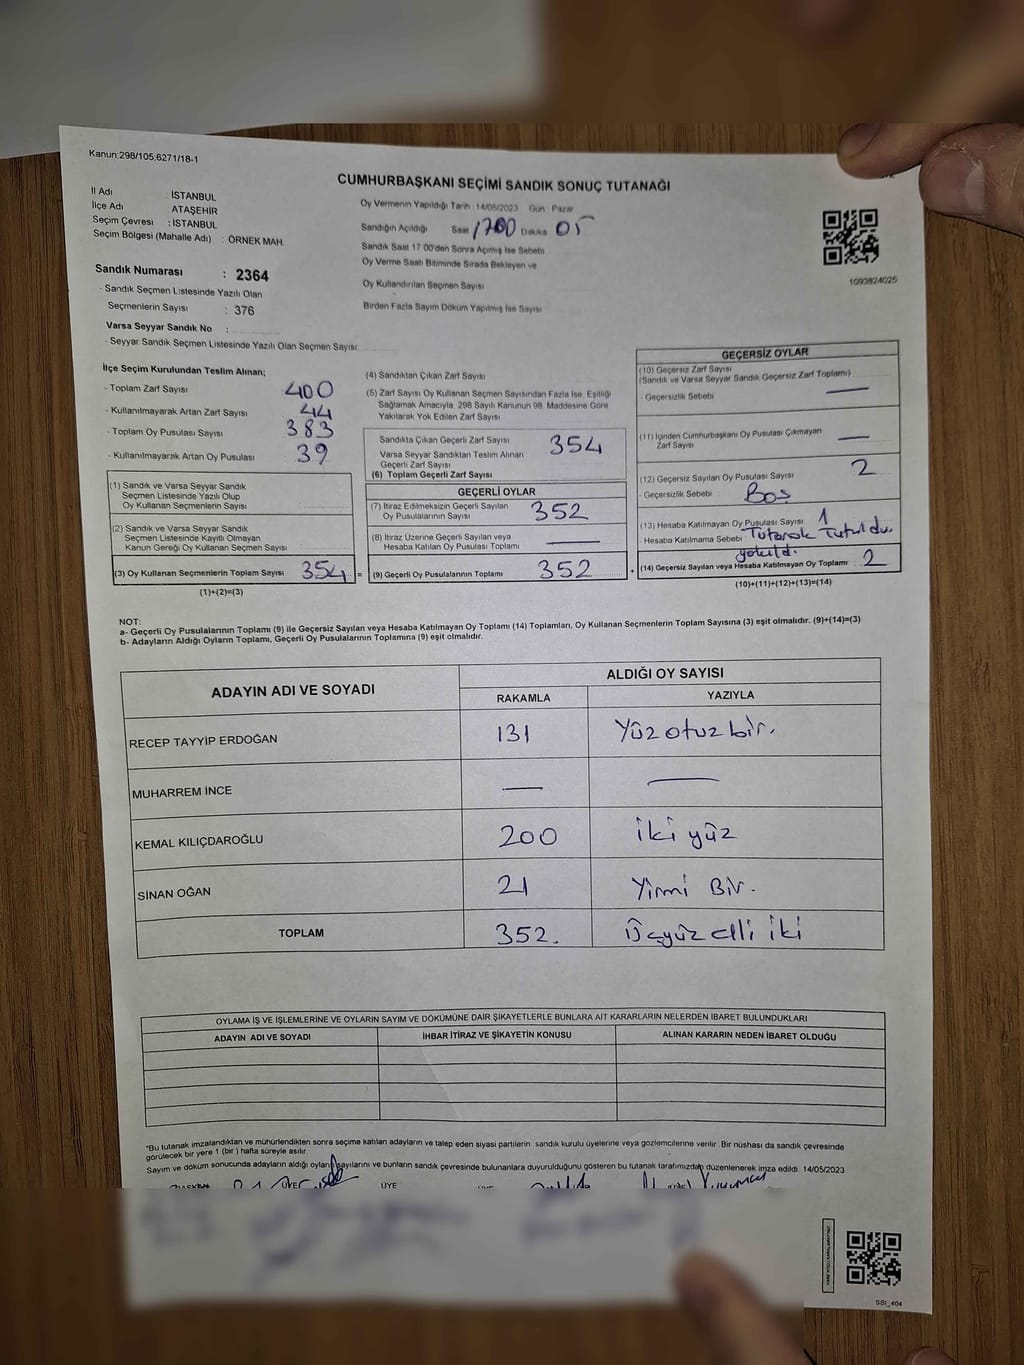 Kanun:298/105,6271/18-1
CUMHURBAŞKANI SEÇİMİ SANDIK SONUÇ TUTANAĞI
İl Adı : İSTANBUL
İlçe Adı : ATAŞEHİR
Seçim Çevresi : İSTANBUL
Seçim Bölgesi (Mahalle Adı) : ÖRNEK MAH.
Sandık Numarası : 2364
- Sandık Seçmen Listesinde Yazılı Olan
Seçmenlerin Sayısı : 376
Varsa Seyyar Sandık No :
- Seyyar Sandık Seçmen Listesinde Yazılı Olan Seçmen Sayısı:
Oy Vermenin Yapıldığı Tarih 14/05/2023 Gün Pazar
Sandığın Açıldığı Saat 1700 Dakika 05
Sandık Saat 17.00'den Sonra Açılmış İse Sebebi
Oy Verme Saati Bitiminde Sırada Bekleyen ve
Oy Kullandırılan Seçmen Sayısı
Birden Fazla Sayım Döküm Yapılmış İse Sayısı
1093824025
İlçe Seçim Kurulundan Teslim Alınan;
- Toplam Zarf Sayısı 400
- Kullanılmayarak Artan Zarf Sayısı 44
- Toplam Oy Pusulası Sayısı 383
- Kullanılmayarak Artan Oy Pusulası 39
(1) Sandık ve Varsa Seyyar Sandık
Seçmen Listesinde Yazılı Olup
Oy Kullanan Seçmenlerin Sayısı
(2) Sandık ve Varsa Seyyar Sandık
Seçmen Listesinde Kayıtlı Olmayan
Kanun Gereği Oy Kullanan Seçmen Sayısı
(3) Oy Kullanan Seçmenlerin Toplam Sayısı 354 =
(1)+(2)=(3)
(4) Sandıktan Çıkan Zarf Sayısı
(5) Zarf Sayısı Oy Kullanan Seçmen Sayısından Fazla İse, Eşitliği
Sağlamak Amacıyla, 298 Sayılı Kanunun 98. Maddesine Göre
Yakılarak Yok Edilen Zarf Sayısı
Sandıkta Çıkan Geçerli Zarf Sayısı 354
Varsa Seyyar Sandıktan Teslim Alınan
Geçerli Zarf Sayısı
(6) Toplam Geçerli Zarf Sayısı
GEÇERLİ OYLAR
(7) İtiraz Edilmeksizin Geçerli Sayılan
Oy Pusulalarının Sayısı 352
(8) İtiraz Üzerine Geçerli Sayılan veya
Hesaba Katılan Oy Pusulası Toplamı —
(9) Geçerli Oy Pusulalarının Toplamı 352 +
GEÇERSİZ OYLAR
(10) Geçersiz Zarf Sayısı
(Sandık ve Varsa Seyyar Sandık Geçersiz Zarf Toplamı)
- Geçersizlik Sebebi —
(11) İçinden Cumhurbaşkanı Oy Pusulası Çıkmayan
Zarf Sayısı —
(12) Geçersiz Sayılan Oy Pusulası Sayısı 2
- Geçersizlik Sebebi Boş
(13) Hesaba Katılmayan Oy Pusulası Sayısı 1
- Hesaba Katılmama Sebebi Tutanak Tutuldu
yakıldı.
(14) Geçersiz Sayılan veya Hesaba Katılmayan Oy Toplamı : 2
(10)+(11)+(12)+(13)=(14)
NOT:
a- Geçerli Oy Pusulalarının Toplamı (9) ile Geçersiz Sayılan veya Hesaba Katılmayan Oy Toplamı (14) Toplamları, Oy Kullanan Seçmenlerin Toplam Sayısına (3) eşit olmalıdır. (9)+(14)=(3)
b- Adayların Aldığı Oyların Toplamı, Geçerli Oy Pusulalarının Toplamına (9) eşit olmalıdır.
ADAYIN ADI VE SOYADI ALDIĞI OY SAYISI
RAKAMLA YAZIYLA
RECEP TAYYİP ERDOĞAN 131 Yüzotuzbir.
MUHARREM İNCE — —
KEMAL KILIÇDAROĞLU 200 iki yüz
SİNAN OĞAN 21 Yirmi Bir.
TOPLAM 352. Üçyüz elli iki
OYLAMA İŞ VE İŞLEMLERİNE VE OYLARIN SAYIM VE DÖKÜMÜNE DAİR ŞİKAYETLERLE BUNLARA AİT KARARLARIN NELERDEN İBARET BULUNDUKLARI
ADAYIN ADI VE SOYADI İHBAR İTİRAZ VE ŞİKAYETİN KONUSU ALINAN KARARIN NEDEN İBARET OLDUĞU
*Bu tutanak imzalandıktan ve mühürlendikten sonra seçime katılan adayların ve talep eden siyasi partilerin sandık kurulu üyelerine veya gözlemcilerine verilir. Bir nüshası da sandık çevresinde
görülecek bir yere 1 (bir) hafta süreyle asılır.
Sayım ve döküm sonucunda adayların aldığı oyların sayılarını ve bunların sandık çevresinde bulunanlara duyurulduğunu gösteren bu tutanak tarafımızdan düzenlenerek imza edildi. 14/05/2023
BAŞKAN ÜYE ÜYE
SS1_404